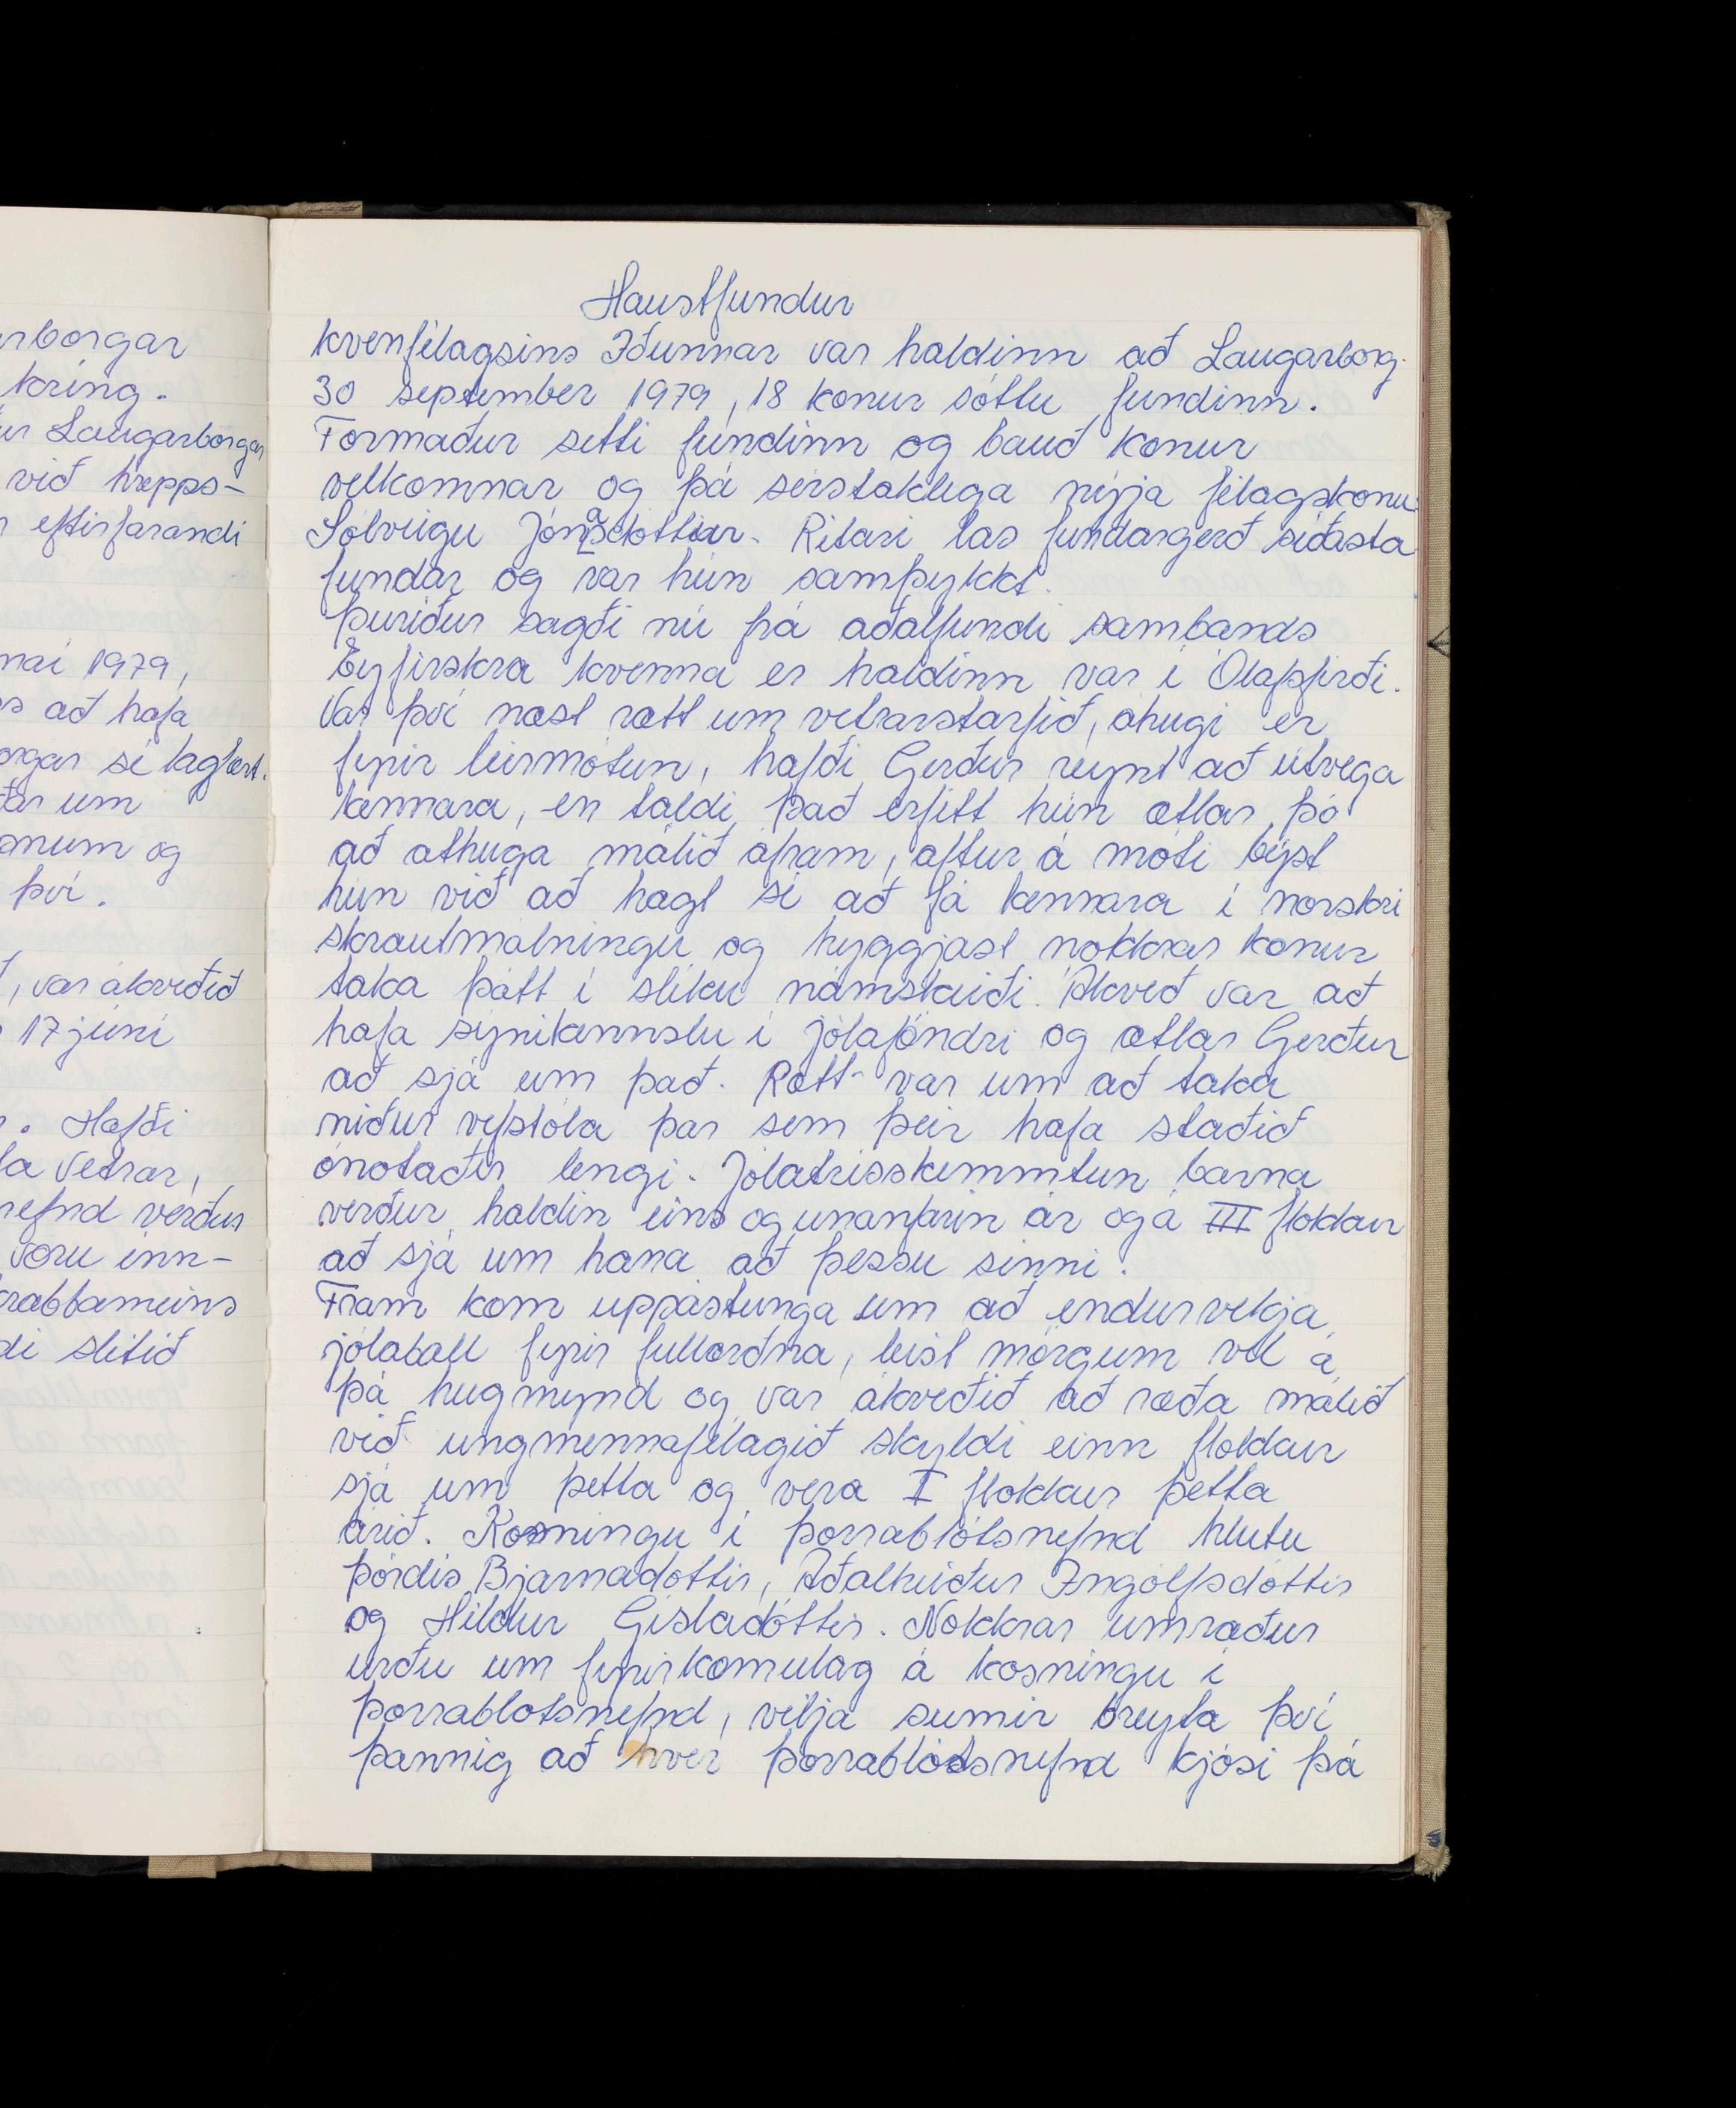 rborgar
kring.
ur Laugarborgar
við hrepps-
eftirfarandi
maí 1979,
að hafa
orgar sé lagfært.
um
onum og
því.
, var ákveðið
17 júní
. Hafði
la vetrar,
nefnd verður
voru inn-
krabbameins
di slitið
Haustfundur
kvenfélagsins Iðunnar var haldinn að Laugarborg.
30 september 1979, 18 konur sóttu fundinn.
Formaður setti fundinn og bauð konur
velkomnar og þá sérstaklega nýja félagskonu
Sólveigu Jónasdóttur. Ritari las fundargerð síðasta
fundar og var hún samþykkt.
Þuríður sagði nú frá aðalfundi sambands
Eyfirskra kvenna er haldinn var í Ólafsfirði.
Var því næst rætt um vetrarstarfið, áhugi er
fyrir leirmótun, hafði Gerður reynt að útvega
kennara, en taldi það erfitt hún ætlar þó
að athuga málið áfram, aftur á móti býst
hún við að hægt sé að fá kennara í norskri
skrautmálningu og hyggjast nokkrar konur
taka þátt í slíku námskeiði. Ákveð var að
hafa sýnikennslu í jólaföndri og ætlar Gerður
að sjá um það. Rætt var um að taka
niður vefstóla þar sem þeir hafa staðið
ónotaðir lengi. Jólatrésskemmtun barna
verður haldin eins og unanfarin ár og á III flokkur
að sjá um hana að þessu sinni.
Fram kom uppástunga um að endurvekja
jólaball fyrir fullorðna, leist mörgum vel á
þá hugmynd og var ákveðið að ræða málið
við ungmennafélagið skyldi einn flokkur
sjá um þetta og vera I flokkur þetta
árið. Kosningu í þorrablótsnefnd hlutu
Þórdís Bjarnadóttir, Aðalheiður Ingólfsdóttir
og Hildur Gísladóttir. Nokkrar umræður
urðu um fyrirkomulag á kosningu í
þorrablótsnefnd, vilja sumir breyta því
þannig að hver þorrablótsnefnd kjósi þá